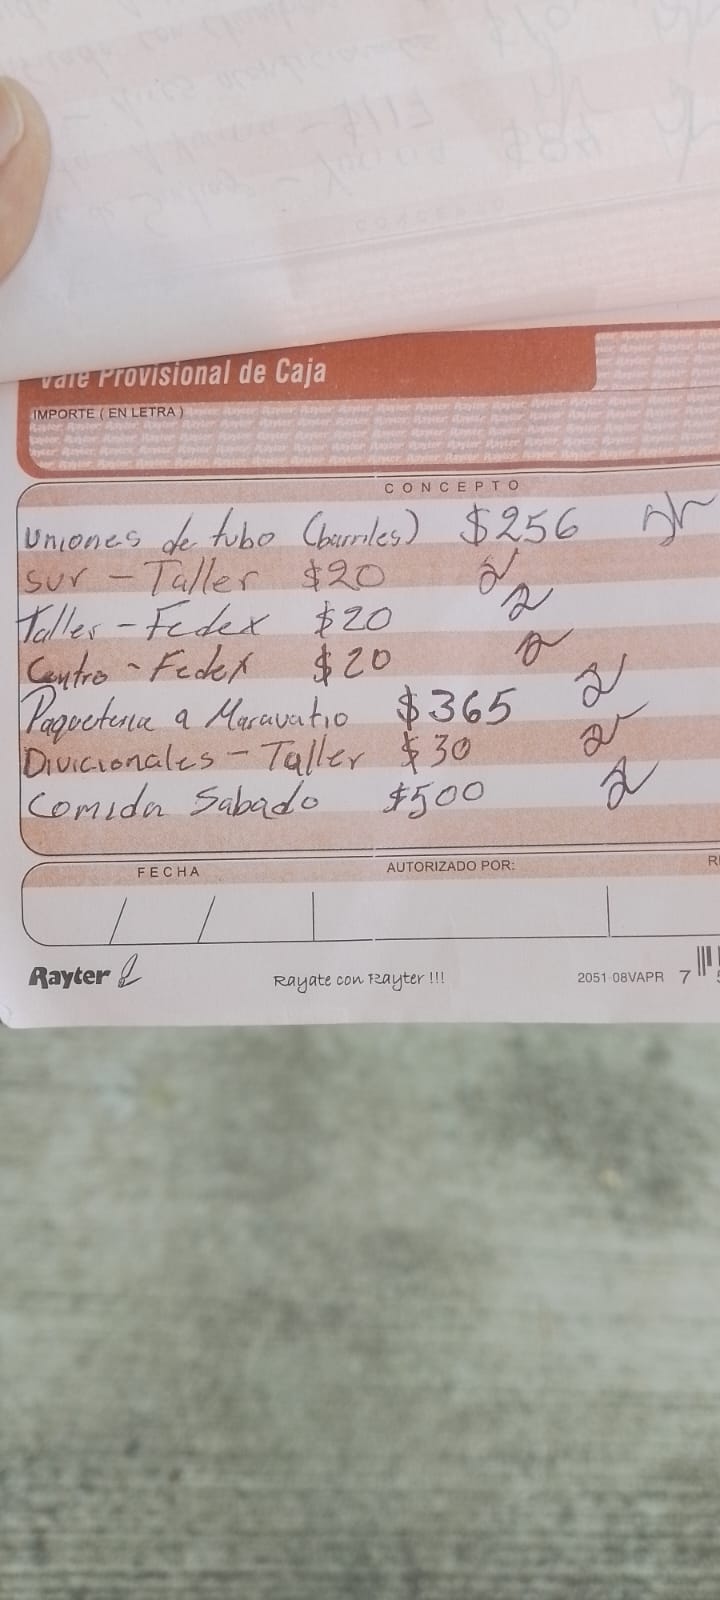 Vale Provisional de Caja
IMPORTE ( EN LETRA )
CONCEPTO
Uniones de tubo (barriles) $256
Sur - Taller $20
Taller - Fedex $20
Centro - Fedex $20
Paqueteria a Maravatio $365
Divicionales - Taller $30
Comida Sabado $500
FECHA AUTORIZADO POR:
Rayter Rayate con Rayter !!! 2051 08VAPR 7